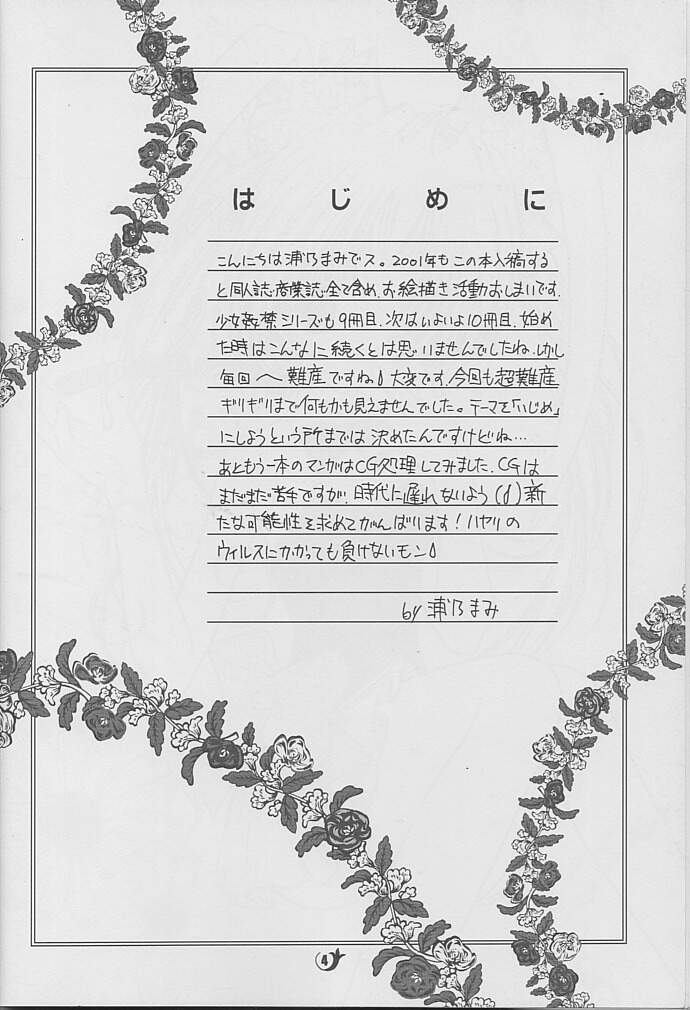 はじめに
こんにちは浦乃まみでス。2001年もこの本入稿する
と同人誌・商業誌・全て含め、お絵描き活動おしまいです.
少女姦禁シリーズも9冊目.次はいよいよ10冊目.始め
た時はこんなに続くとは思いませんでしたね.しかし
毎回へ難産ですね♪大変です.今回も超難産
ギリギリまで何もかも見えませんでした。テーマを「いじめ」
にしようという所までは決めたんですけどね…
あともう一本のマンガはCG処理してみました.CGは
まだまだ苦手ですが.時代に遅れないよう(♪)新
たな可能性を求めてがんばります!ハヤリの
ウィルスにかかっても負けないモン♪
by 浦乃まみ
4